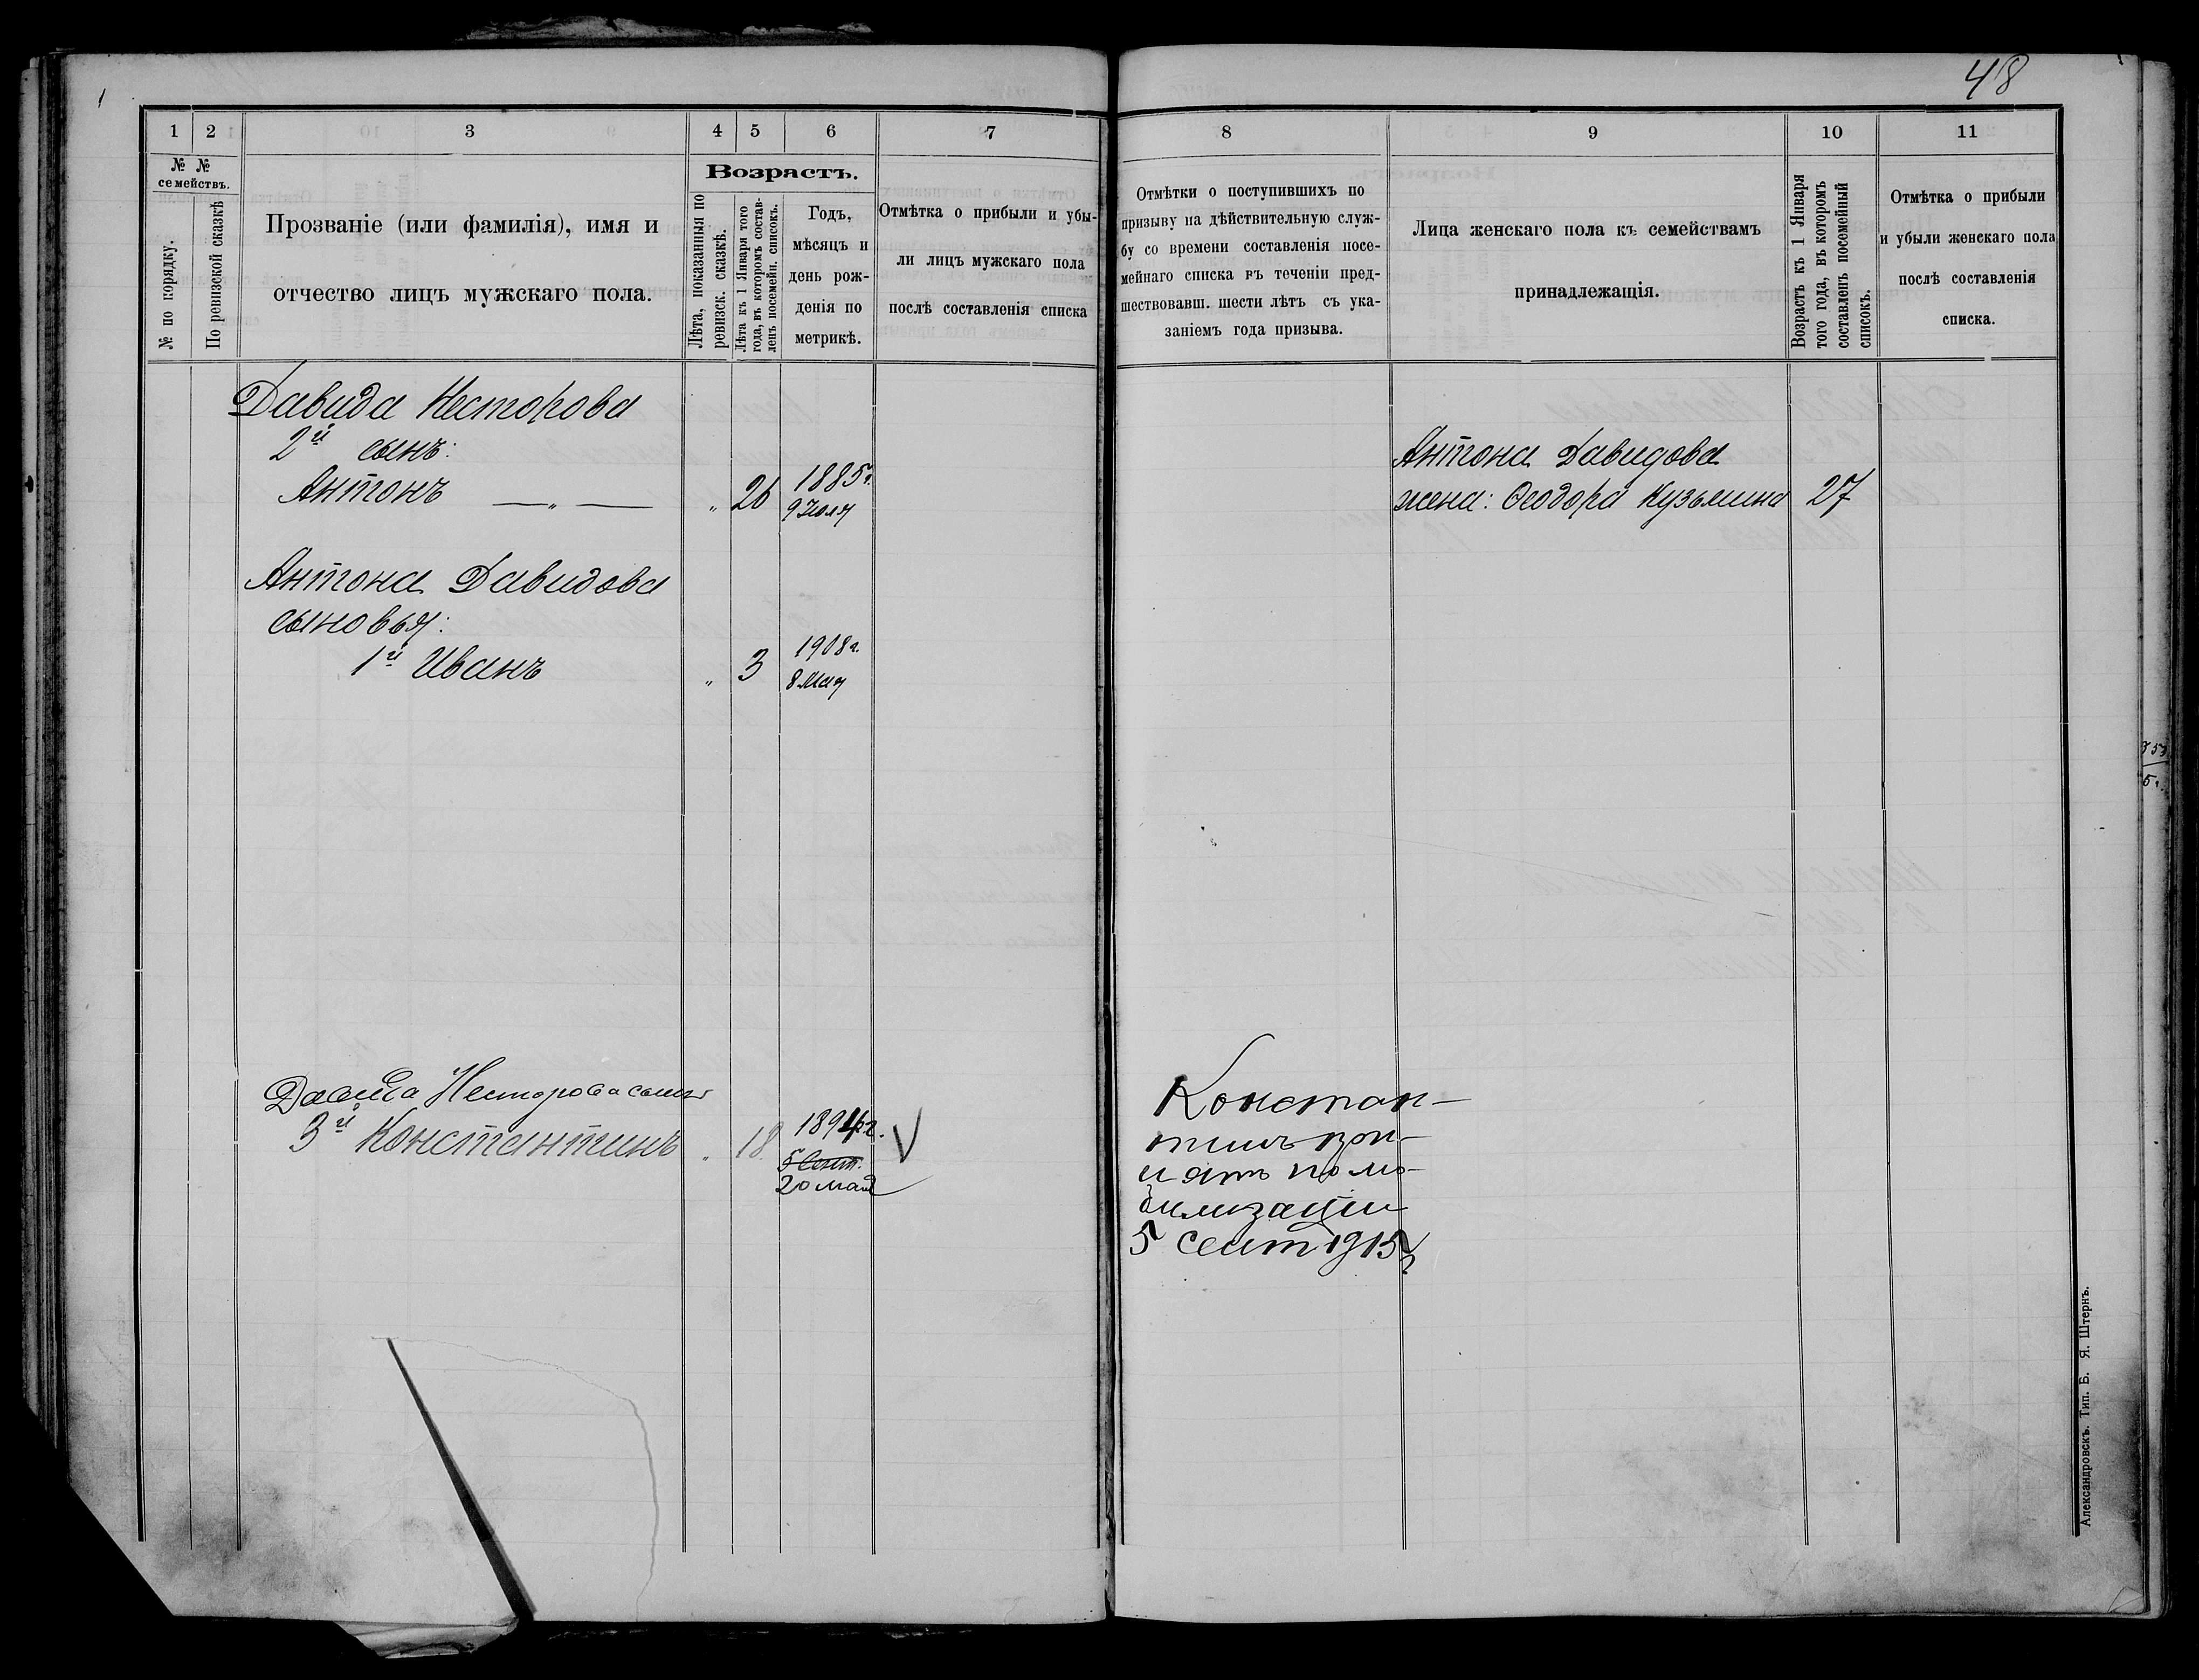 48
1 2 3 4 5 6 7
№ № семействъ.
№ по порядку.
По ревизской сказкѣ
Прозваніе (или фамилія), имя и
отчество лицъ мужскаго пола.
Возрастъ.
Лѣта, показанныя по
ревизск. сказкѣ.
Лѣта къ 1 Января того
года, въ которомъ состав-
ленъ посемейн. списокъ.
Годъ,
мѣсяцъ и
день рож-
денія по
метрикѣ.
Отмѣтка о прибыли и убы-
ли лицъ мужскаго пола
послѣ составленія списка
Давида Несторова
2й сынъ:
Антонъ —„— „ 26 1885г.
9 Іюля
Антона Давидова
сыновья:
1й Иванъ „ 3 1908г.
8 Мая
Давида Несторова сынъ
3й Константинъ „ 18 1894г. V
5 Сент.
20 мая
8 9 10 11
Отмѣтки о поступившихъ по
призыву на дѣйствительную служ-
бу со времени составленія посе-
мейнаго списка въ теченіи пред-
шествовавш. шести лѣтъ съ ука-
заніемъ года призыва.
Лица женскаго пола къ семействамъ
принадлежащія.
Возрастъ къ 1 Января
того года, въ которомъ
составленъ посемейный
списокъ.
Отмѣтка о прибыли
и убыли женскаго пола
послѣ составленія
списка.
Антона Давидова
жена: Ѳеодора Кузьмина 27
Констан-
тинъ при-
нятъ по мо-
билизаціи
5 Сент 1915г
Александровскъ. Тип. Б. Я. Штернъ.